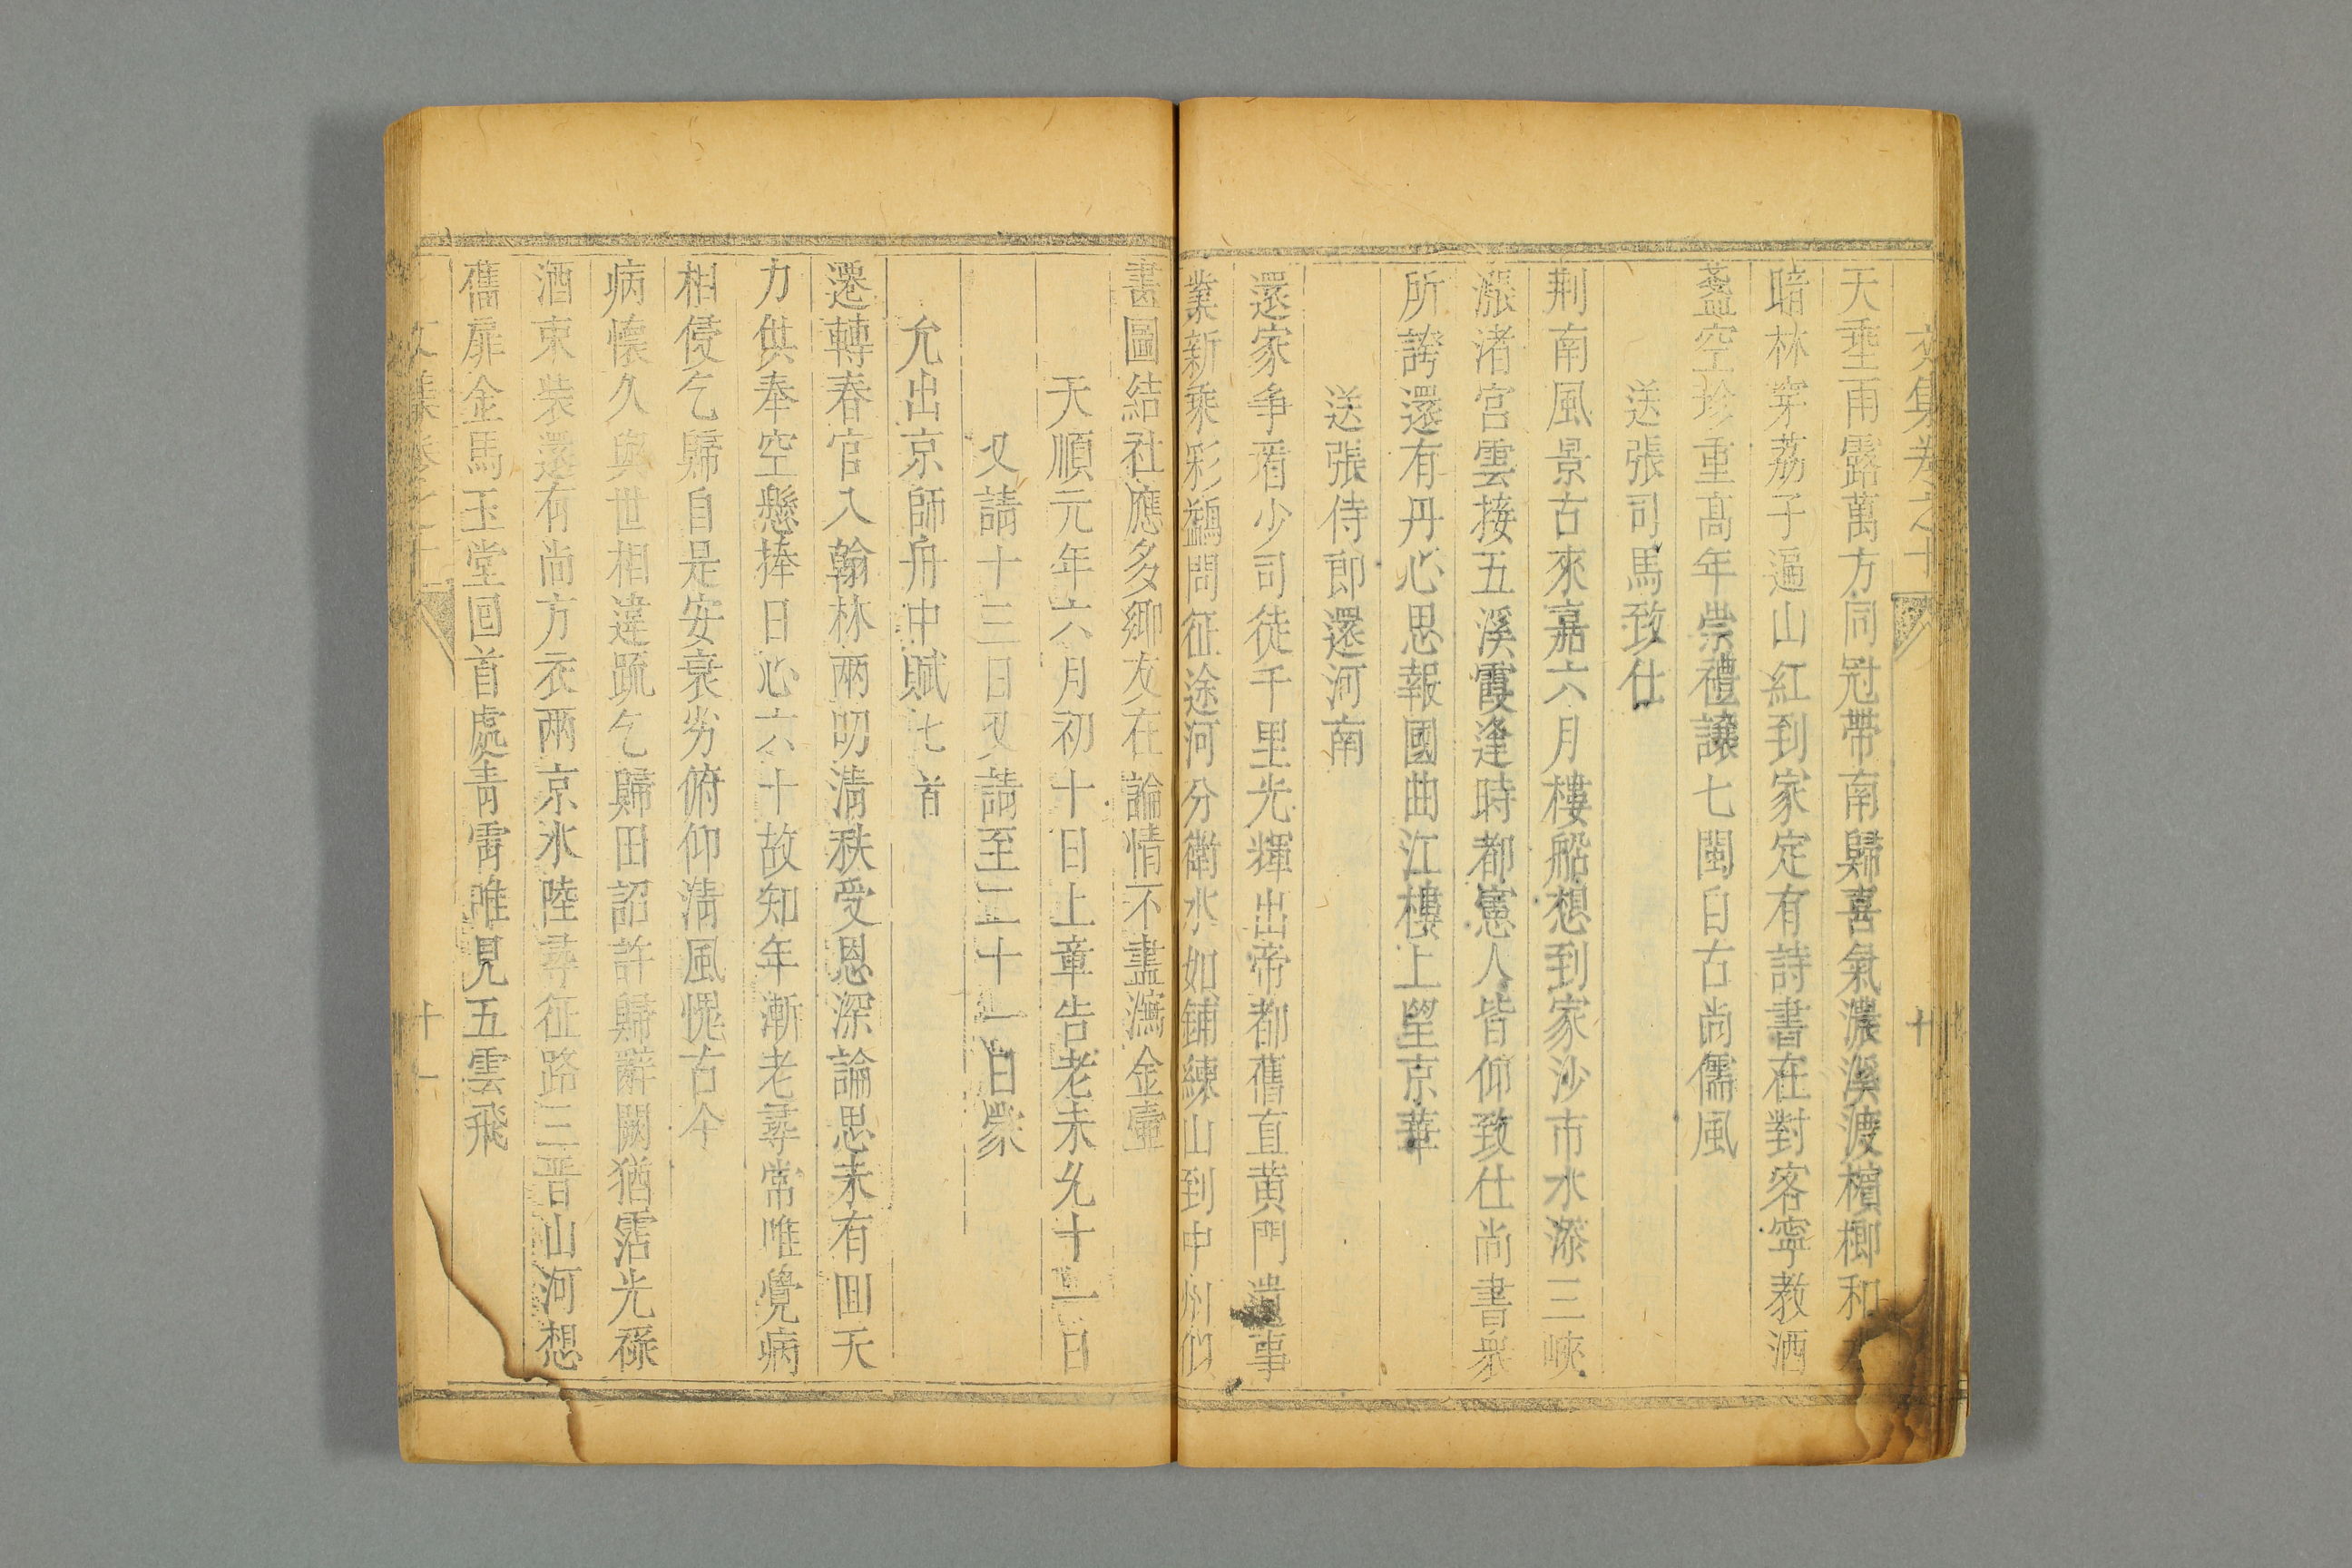 文集卷之十
十
天垂雨露萬方同冠帶南歸喜氣濃溪渡檳榔和
暗林穿荔子逼山紅到家定有詩書在對客寧教酒
盞空珍重高年崇禮讓七閩自古尚儒風
送張司馬致仕
荆南風景古來嘉六月樓船想到家沙市水添三峽
漲渚宫雲接五溪霞逢時都憲人皆仰致仕尚書衆
所誇還有丹心思報國曲江樓上望京華
送張侍郎還河南
還家争看少司徒千里光輝出帝都舊直黄門遺事
業新乘彩鷁問征途河分衛水如鋪練山到中州似
畵圖結社應多鄉友在論情不盡瀉金壷
天順元年六月初十日上章告老未允十二日
又請十三日又請至二十一日蒙
允出京師舟中賦七首
遷轉春官入翰林兩叨清秩受恩深論思未有囬天
力供奉空懸捧日心六十故知年漸老尋常唯覺病
相侵乞歸自是安衰劣俯仰清風愧古今
病懷久與世相違䟽乞歸田詔許歸辭闕猶霑光祿
酒束裝還有尚方衣兩京水陸尋征路三晋山河想
舊扉金馬玉堂回首處青霄唯見五雲飛
文集卷之十
十一